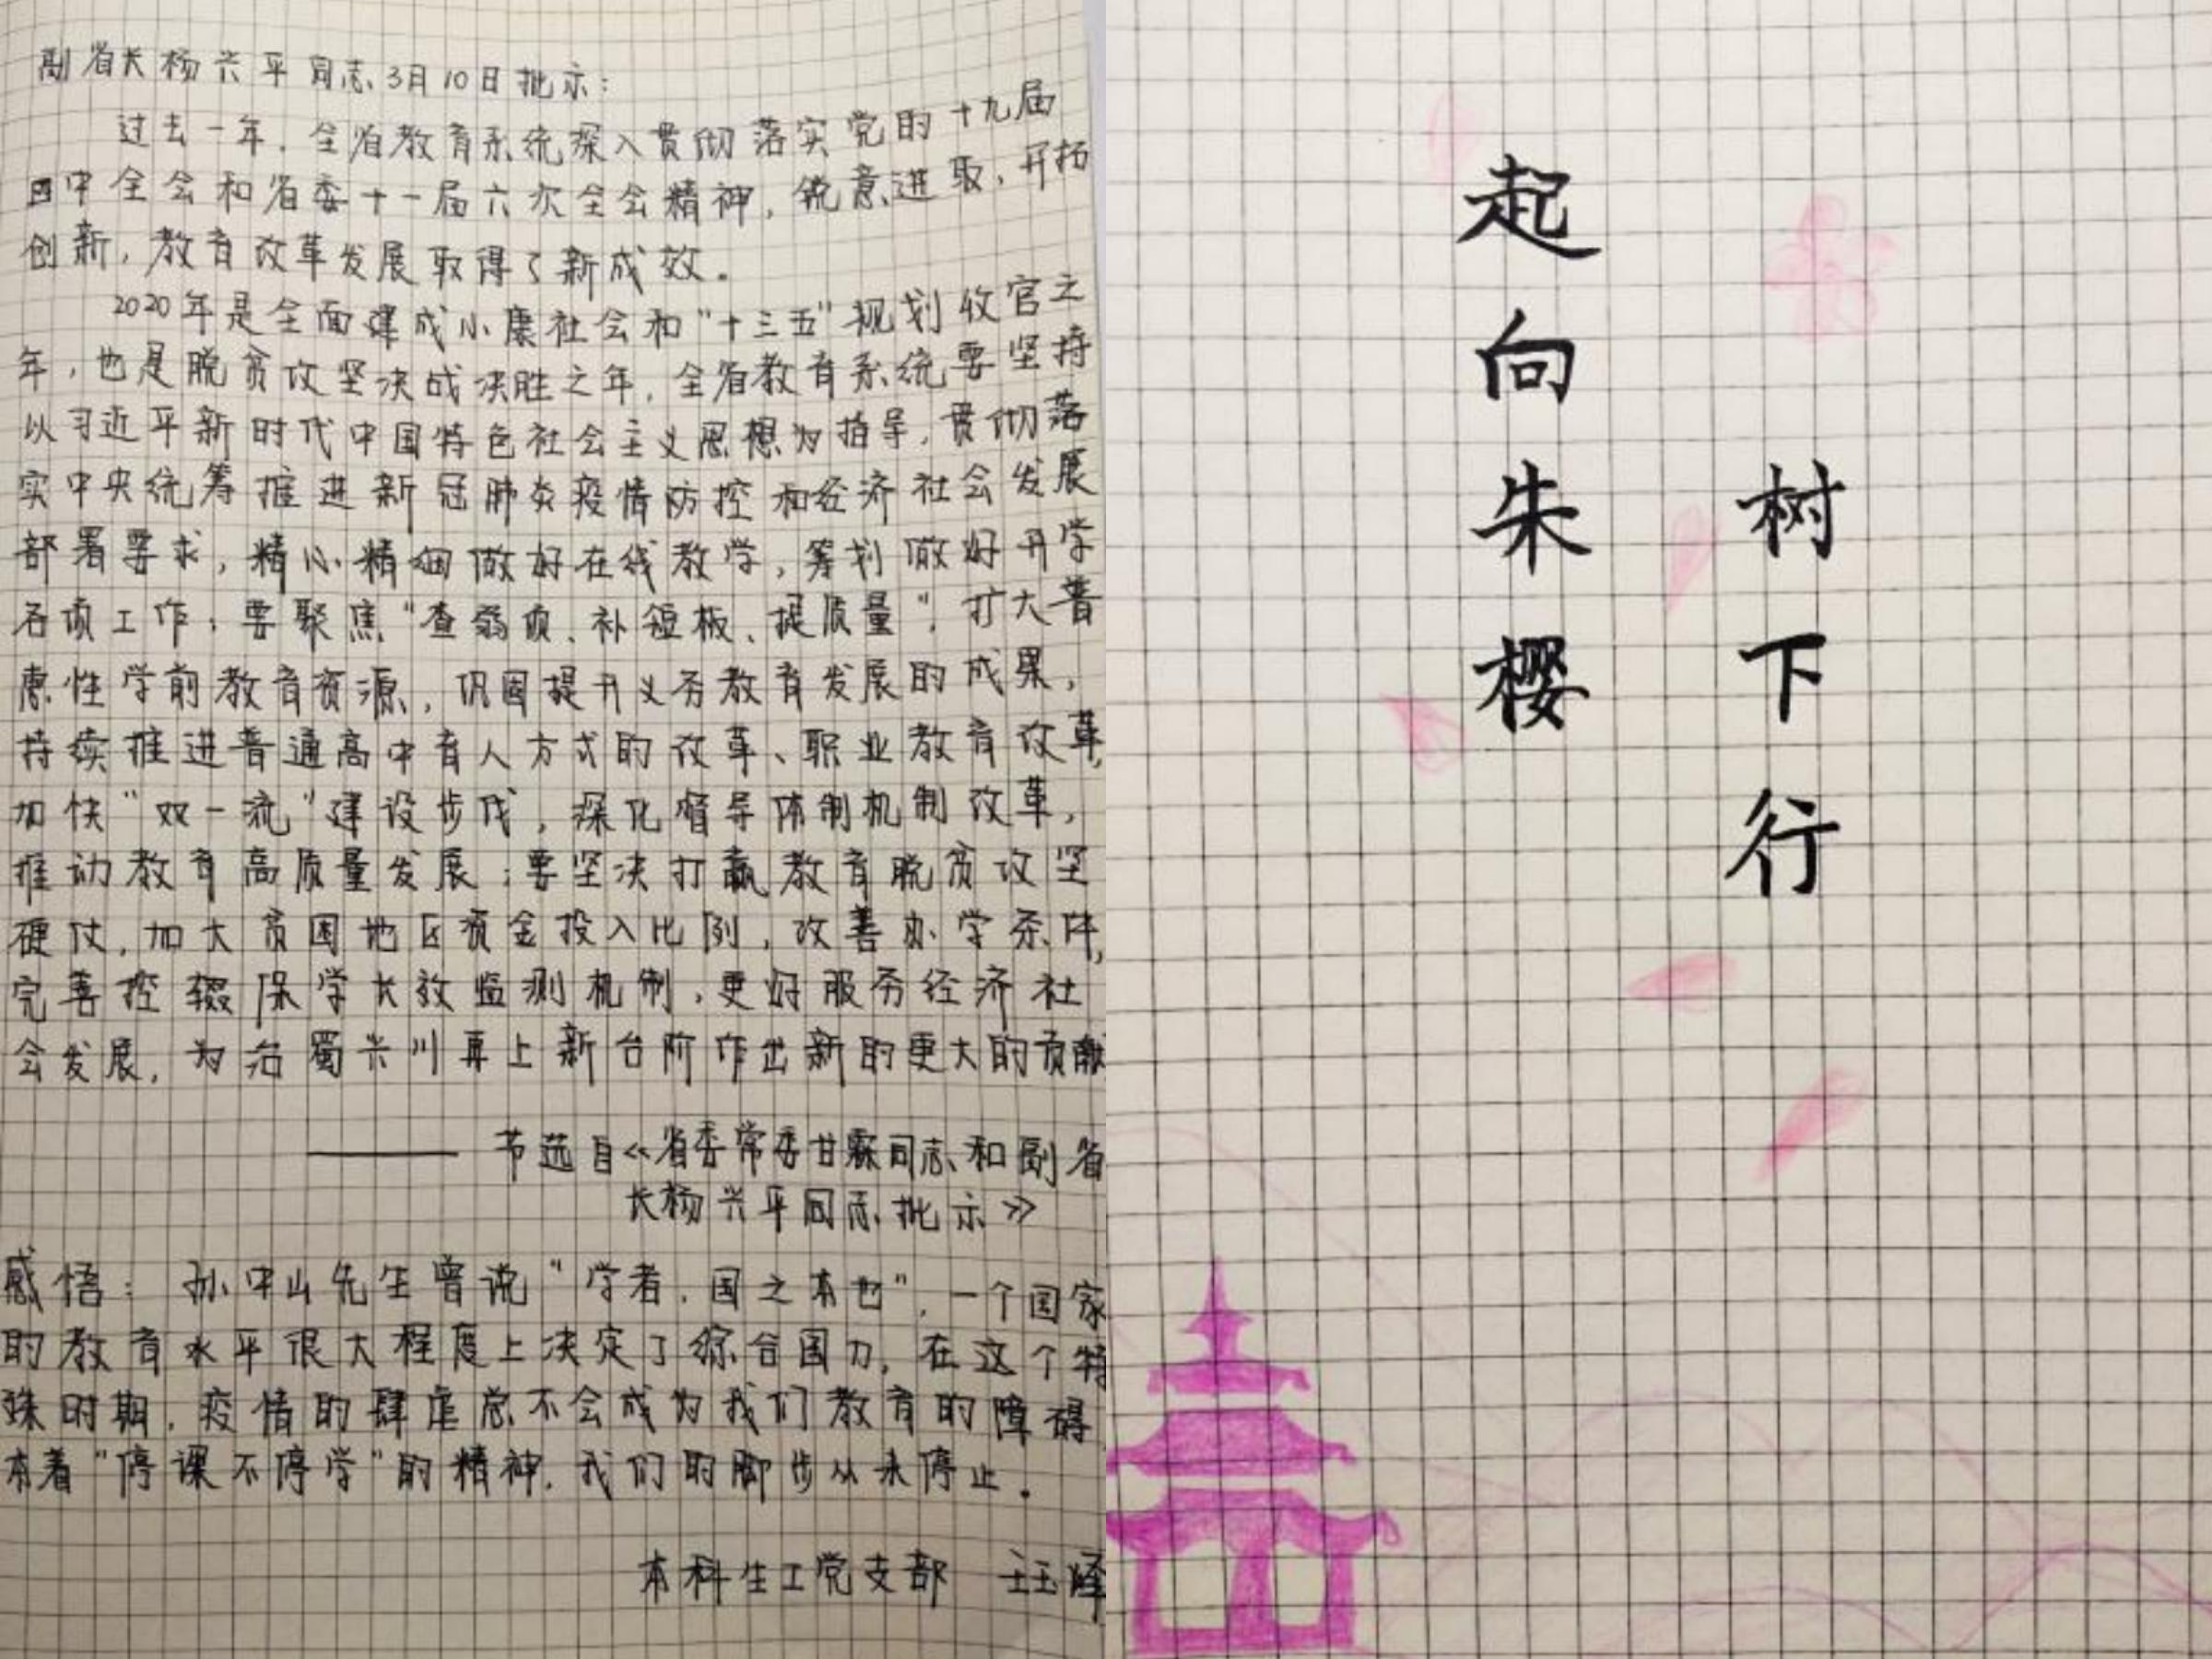 副省长杨兴平同志3月10日批示:
过去一年,全省教育系统深入贯彻落实党的十九届
四中全会和省委十一届六次全会精神,锐意进取,开拓
创新,教育改革发展取得了新成效。
2020年是全面建成小康社会和“十三五”规划收官之
年,也是脱贫攻坚决战决胜之年,全省教育系统要坚持
以习近平新时代中国特色社会主义思想为指导,贯彻落
实中央统筹推进新冠肺炎疫情防控和经济社会发展
部署要求,精心精细做好在线教学,筹划做好开学
各项工作;要聚焦“查弱项、补短板、提质量”,扩大普
惠性学前教育资源,巩固提升义务教育发展的成果,
持续推进普通高中育人方式的改革、职业教育改革,
加快“双一流”建设步伐,深化督导体制机制改革,
推动教育高质量发展;要坚决打赢教育脱贫攻坚
硬仗,加大贫困地区资金投入比例,改善办学条件,
完善控辍保学长效监测机制,更好服务经济社
会发展,为治蜀兴川再上新台阶作出新的更大的贡献
——节选自《省委常委甘霖同志和副省
长杨兴平同志批示》
感悟:孙中山先生曾说“学者,国之本也”,一个国家
的教育水平很大程度上决定了综合国力,在这个特
殊时期,疫情的肆虐总不会成为我们教育的障碍
本着“停课不停学”的精神,我们的脚步从未停止。
本科生工党支部 王玉峰
树下行
起向朱樱